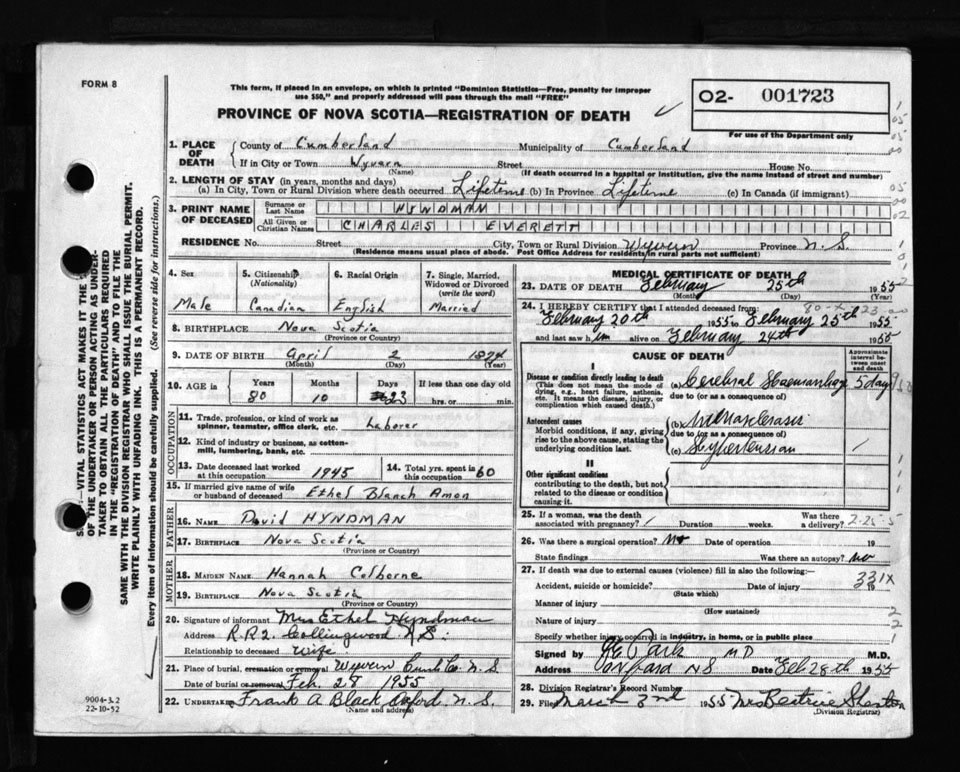 FORM 8
This form, if placed in an envelope, on which is printed "Dominion Statistics—Free, penalty for improper
use $50," and properly addressed will pass through the mail "FREE"
PROVINCE OF NOVA SCOTIA—REGISTRATION OF DEATH
02- 001723
For use of the Department only
1. PLACE OF DEATH
County of Cumberland Municipality of Cumberland
If in City or Town Wyvern Street House No.
(Name) (If death occurred in a hospital or institution, give the name instead of street and number)
2. LENGTH OF STAY (in years, months and days)
(a) In City, Town or Rural Division where death occurred Lifetime (b) In Province Lifetime (c) In Canada (if immigrant)
3. PRINT NAME OF DECEASED
Surname or Last Name HYNDMAN
All Given or Christian Names CHARLES EVERETT
RESIDENCE No. Street City, Town or Rural Division Wyvern Province N.S.
(Residence means usual place of abode. Post Office Address for residents in rural parts not sufficient)
4. Sex
Male
5. Citizenship
(Nationality)
Canadian
6. Racial Origin
English
7. Single, Married, Widowed or Divorced
(write the word)
Married
8. BIRTHPLACE Nova Scotia
(Province or Country)
9. DATE OF BIRTH April 2 1874
(Month) (Day) (Year)
10. AGE in Years Months Days If less than one day old
80 10 23 hrs. or min.
OCCUPATION
11. Trade, profession, or kind of work as
spinner, teamster, office clerk, etc. Laborer
12. Kind of industry or business, as cotton-
mill, lumbering, bank, etc.
13. Date deceased last worked
at this occupation 1945
14. Total yrs. spent in
this occupation 60
15. If married give name of wife
or husband of deceased Ethel Blanch Amon
FATHER
16. NAME David HYNDMAN
17. BIRTHPLACE Nova Scotia
(Province or Country)
MOTHER
18. MAIDEN NAME. Hannah Colborne
19. BIRTHPLACE Nova Scotia
(Province or Country)
20. Signature of informant Mrs Ethel Hyndman
Address R.R.2. Collingwood N.S.
Relationship to deceased Wife
21. Place of burial, cremation or removal Wyvern Cumb Co. N.S
Date of burial or removal Feb. 28 1955
22. UNDERTAKER Frank A Black Oxford. N.S.
(Name and address)
MEDICAL CERTIFICATE OF DEATH
23. DATE OF DEATH February 25th 1955
(Month) (Day) (Year)
24. I HEREBY CERTIFY that I attended deceased from:
February 20th 1955 to February 25th 1955
and last saw him alive on February 24th 1955
CAUSE OF DEATH
Approximate interval between onset and death
I
Disease or condition directly leading to death
(This does not mean the mode of dying, e.g., heart failure, asthenia, etc. It means the disease, injury, or complication which caused death.)
(a) Cerebral Haemorrhage 5 days
due to (or as a consequence of)
Antecedent causes
Morbid conditions, if any, giving rise to the above cause, stating the underlying condition last.
(b) Arteriosclerosis
due to (or as a consequence of)
(c) Hypertension
II
Other significant conditions
contributing to the death, but not related to the disease or condition causing it.
25. If a woman, was the death
associated with pregnancy? Duration weeks. Was there a delivery?
2-25-5
26. Was there a surgical operation? No Date of operation 19
State findings Was there an autopsy? No
27. If death was due to external causes (violence) fill in also the following:
331X
Accident, suicide or homicide? Date of injury 19
(State which)
Manner of injury
(How sustained)
Nature of injury
Specify whether injury occurred in industry, in home, or in public place
Signed by M D M.D.
Address Oxford N S Date Feb 28th 1955
28. Division Registrar's Record Number
29. Filed March 2nd 1955 Mrs Beatrice
(Division Registrar)
9004-3.2
22-10-52
VITAL STATISTICS ACT MAKES IT THE
OF THE UNDERTAKER OR PERSON ACTING AS UNDER-
TAKER TO OBTAIN ALL THE PARTICULARS REQUIRED
IN THE "REGISTRATION OF DEATH" AND TO FILE THE
SAME WITH THE DIVISION REGISTRAR WHO SHALL ISSUE THE BURIAL PERMIT.
WRITE PLAINLY WITH UNFADING INK. THIS IS A PERMANENT RECORD.
Every item of information should be carefully supplied. (See reverse side for instructions.)